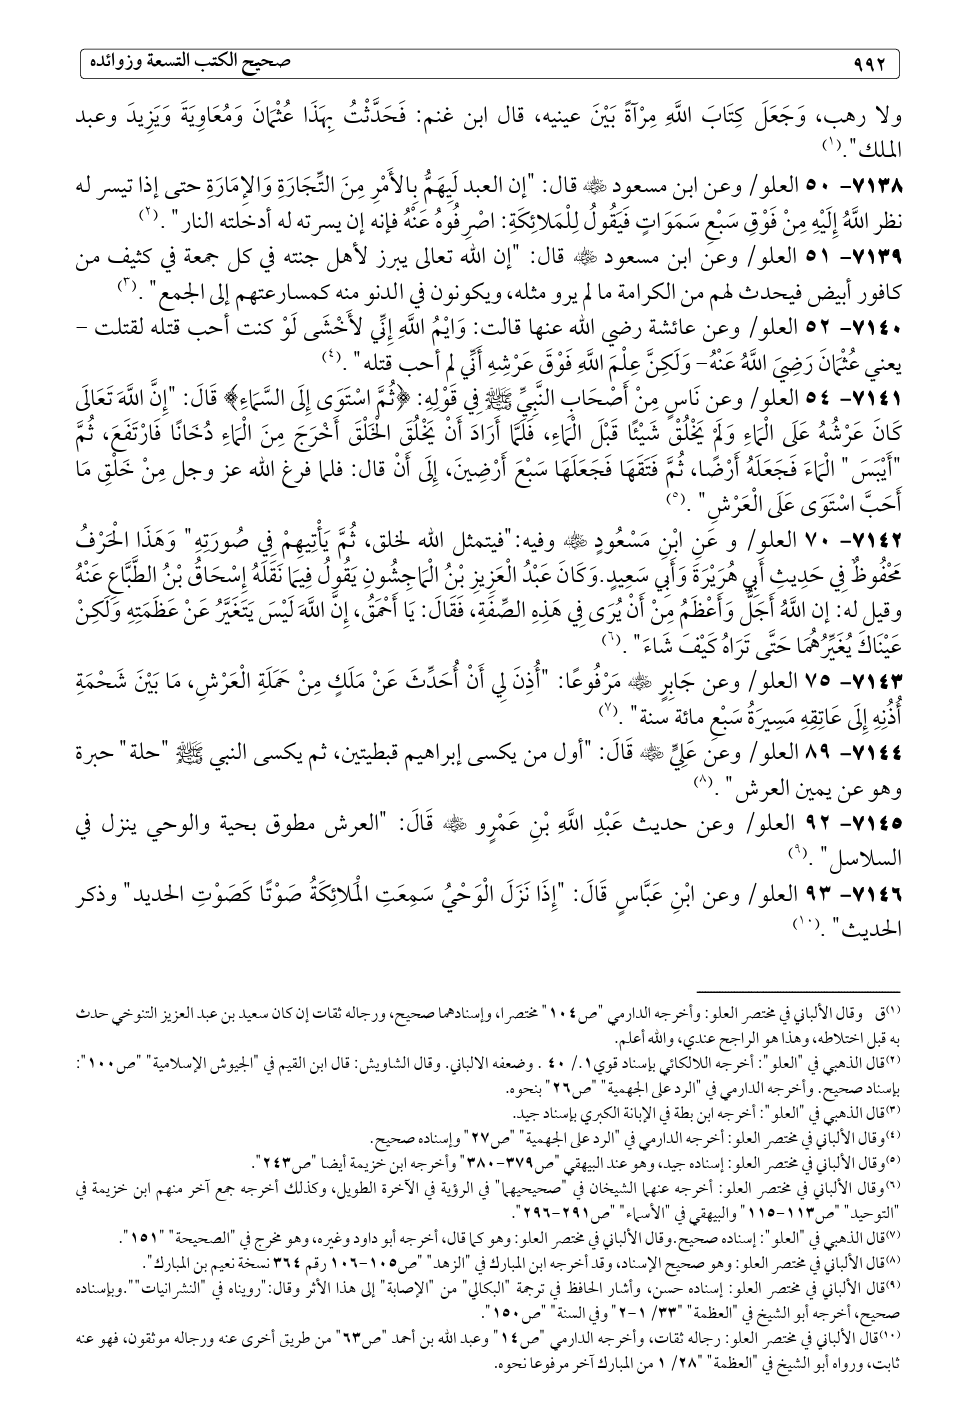 ٩٩٢
صحيح الكتب التسعة وزوائده
ولا رهب، وَجَعَلَ كِتَابَ اللَّهِ مِرْآةً بَيْنَ عينيه، قال ابن غنم: فَحَدَّثْتُ بِهَذَا عُثْمَانَ وَمُعَاوِيَةَ وَيَزِيدَ وعبد
الملك".(١)
٧١٣٨- ٥٠ العلو/ وعن ابن مسعود ﵁ قال: "إن العبد لَيَهُمُّ بِالأَمْرِ مِنَ التِّجَارَةِ وَالإِمَارَةِ حتى إذا تيسر له
نظر اللَّهُ إِلَيْهِ مِنْ فَوْقِ سَبْعِ سَمَوَاتٍ فَيَقُولُ لِلْمَلائِكَةِ: اصْرِفُوهُ عَنْهُ فإنه إن يسرته له أدخلته النار" .(٢)
٧١٣٩- ٥١ العلو/ وعن ابن مسعود ﵁ قال: "إن الله تعالى يبرز لأهل جنته في كل جمعة في كثيف من
كافور أبيض فيحدث لهم من الكرامة ما لم يرو مثله، ويكونون في الدنو منه كمسارعتهم إلى الجمع" .(٣)
٧١٤٠- ٥٢ العلو/ وعن عائشة رضي الله عنها قالت: وَايْمُ اللَّهِ إِنِّي لأَخْشَى لَوْ كنت أحب قتله لقتلت –
يعني عُثْمَانَ رَضِيَ اللَّهُ عَنْهُ– وَلَكِنَّ عِلْمَ اللَّهِ فَوْقَ عَرْشِهِ أَنِّي لم أحب قتله" .(٤)
٧١٤١- ٥٤ العلو/ وعن نَاسٍ مِنْ أَصْحَابِ النَّبِيِّ ﷺ فِي قَوْلِهِ: ﴿ثُمَّ اسْتَوَى إِلَى السَّمَاءِ﴾ قَالَ: "إِنَّ اللَّهَ تَعَالَى
كَانَ عَرْشُهُ عَلَى الْمَاءِ وَلَمْ يَخْلُقْ شَيْئًا قَبْلَ الْمَاءِ، فَلَمَّا أَرَادَ أَنْ يَخْلُقَ الْخَلْقَ أَخْرَجَ مِنَ الْمَاءِ دُخَانًا فَارْتَفَعَ، ثُمَّ
"أَيْبَسَ" الْمَاءَ فَجَعَلَهُ أَرْضًا، ثُمَّ فَتَقَهَا فَجَعَلَهَا سَبْعَ أَرْضِينَ، إِلَى أَنْ قال: فلما فرغ الله عز وجل مِنْ خَلْقِ مَا
أَحَبَّ اسْتَوَى عَلَى الْعَرْشِ" .(٥)
٧١٤٢- ٧٠ العلو/ و عَنِ ابْنِ مَسْعُودٍ ﵁ وفيه:"فيتمثل الله لخلق، ثُمَّ يَأْتِيهِمْ فِي صُورَتِهِ" وَهَذَا الْحَرْفُ
مَحْفُوظٌ فِي حَدِيثِ أَبِي هُرَيْرَةَ وَأَبِي سَعِيدٍ.وَكَانَ عَبْدُ الْعَزِيزِ بْنُ الْمَاجِشُونِ يَقُولُ فِيمَا نَقَلَهُ إِسْحَاقُ بْنُ الطَّبَّاعِ عَنْهُ
وقيل له: إن اللَّهُ أَجَلُّ وَأَعْظَمُ مِنْ أَنْ يُرَى فِي هَذِهِ الصِّفَةِ، فَقَالَ: يَا أَحْمَقُ، إِنَّ اللَّهَ لَيْسَ يَتَغَيَّرُ عَنْ عَظَمَتِهِ وَلَكِنْ
عَيْنَاكَ يُغَيِّرُهُمَا حَتَّى تَرَاهُ كَيْفَ شَاءَ" .(٦)
٧١٤٣- ٧٥ العلو/ وعن جَابِرٍ ﵁ مَرْفُوعًا: "أُذِنَ لِي أَنْ أُحَدِّثَ عَنْ مَلَكٍ مِنْ حَمَلَةِ الْعَرْشِ، مَا بَيْنَ شَحْمَةِ
أُذُنِهِ إِلَى عَاتِقِهِ مَسِيرَةُ سَبْعِ مائة سنة" .(٧)
٧١٤٤- ٨٩ العلو/ وعن عَلِيٍّ ﵁ قَالَ: "أول من يكسى إبراهيم قبطيتين، ثم يكسى النبي ﷺ "حلة" حبرة
وهو عن يمين العرش" .(٨)
٧١٤٥- ٩٢ العلو/ وعن حديث عَبْدِ اللَّهِ بْنِ عَمْرٍو ﵁ قَالَ: "العرش مطوق بحية والوحي ينزل في
السلاسل" .(٩)
٧١٤٦- ٩٣ العلو/ وعن ابْنِ عَبَّاسٍ قَالَ: "إِذَا نَزَلَ الْوَحْيُ سَمِعَتِ الْمَلائِكَةُ صَوْتًا كَصَوْتِ الحديد" وذكر
الحديث" .(١٠)
(١)ق وقال الألباني في مختصر العلو: وأخرجه الدارمي "ص١٠٤" مختصرا، وإسنادهما صحيح، ورجاله ثقات إن كان سعيد بن عبد العزيز التنوخي حدث
به قبل اختلاطه، وهذا هو الراجح عندي، والله أعلم.
(٢)قال الذهبي في "العلو": أخرجه اللالكائي بإسناد قوي١./ ٤٠ . وضعفه الالباني. وقال الشاويش: قال ابن القيم في "الجيوش الإسلامية" "ص١٠٠":
بإسناد صحيح. وأخرجه الدارمي في "الرد على الجهمية" "ص٢٦" بنحوه.
(٣)قال الذهبي في "العلو": أخرجه ابن بطة في الإبانة الكبري بإسناد جيد.
(٤)وقال الألباني في مختصر العلو: أخرجه الدارمي في "الرد على الجهمية" "ص٢٧" وإسناده صحيح.
(٥)وقال الألباني في مختصر العلو: إسناده جيد، وهو عند البيهقي "ص٣٧٩-٣٨٠" وأخرجه ابن خزيمة أيضا "ص٢٤٣".
(٦)وقال الألباني في مختصر العلو: أخرجه عنهما الشيخان في "صحيحيهما" في الرؤية في الآخرة الطويل، وكذلك أخرجه جمع آخر منهم ابن خزيمة في
"التوحيد" "ص١١٣-١١٥" والبيهقي في "الأسماء" "ص٢٩١-٢٩٦".
(٧)قال الذهبي في "العلو": إسناده صحيح.وقال الألباني في مختصر العلو: وهو كما قال، أخرجه أبو داود وغيره، وهو مخرج في "الصحيحة" "١٥١".
(٨)قال الألباني في مختصر العلو: وهو صحيح الإسناد، وقد أخرجه ابن المبارك في "الزهد" "ص١٠٥-١٠٦ رقم ٣٦٤ نسخة نعيم بن المبارك".
(٩)قال الألباني في مختصر العلو: إسناده حسن، وأشار الحافظ في ترجمة "البكالي" من "الإصابة" إلى هذا الأثر وقال:"رويناه في "النشرانيات"".وبإسناده
صحيح، أخرجه أبو الشيخ في "العظمة" "٣٣/ ١-٢" وفي السنة" "ص١٥٠".
(١٠)قال الألباني في مختصر العلو: رجاله ثقات، وأخرجه الدارمي "ص١٤" وعبد الله بن أحمد "ص٦٣" من طريق أخرى عنه ورجاله موثقون، فهو عنه
ثابت، ورواه أبو الشيخ في "العظمة" "٢٨/ ١ من المبارك آخر مرفوعا نحوه.